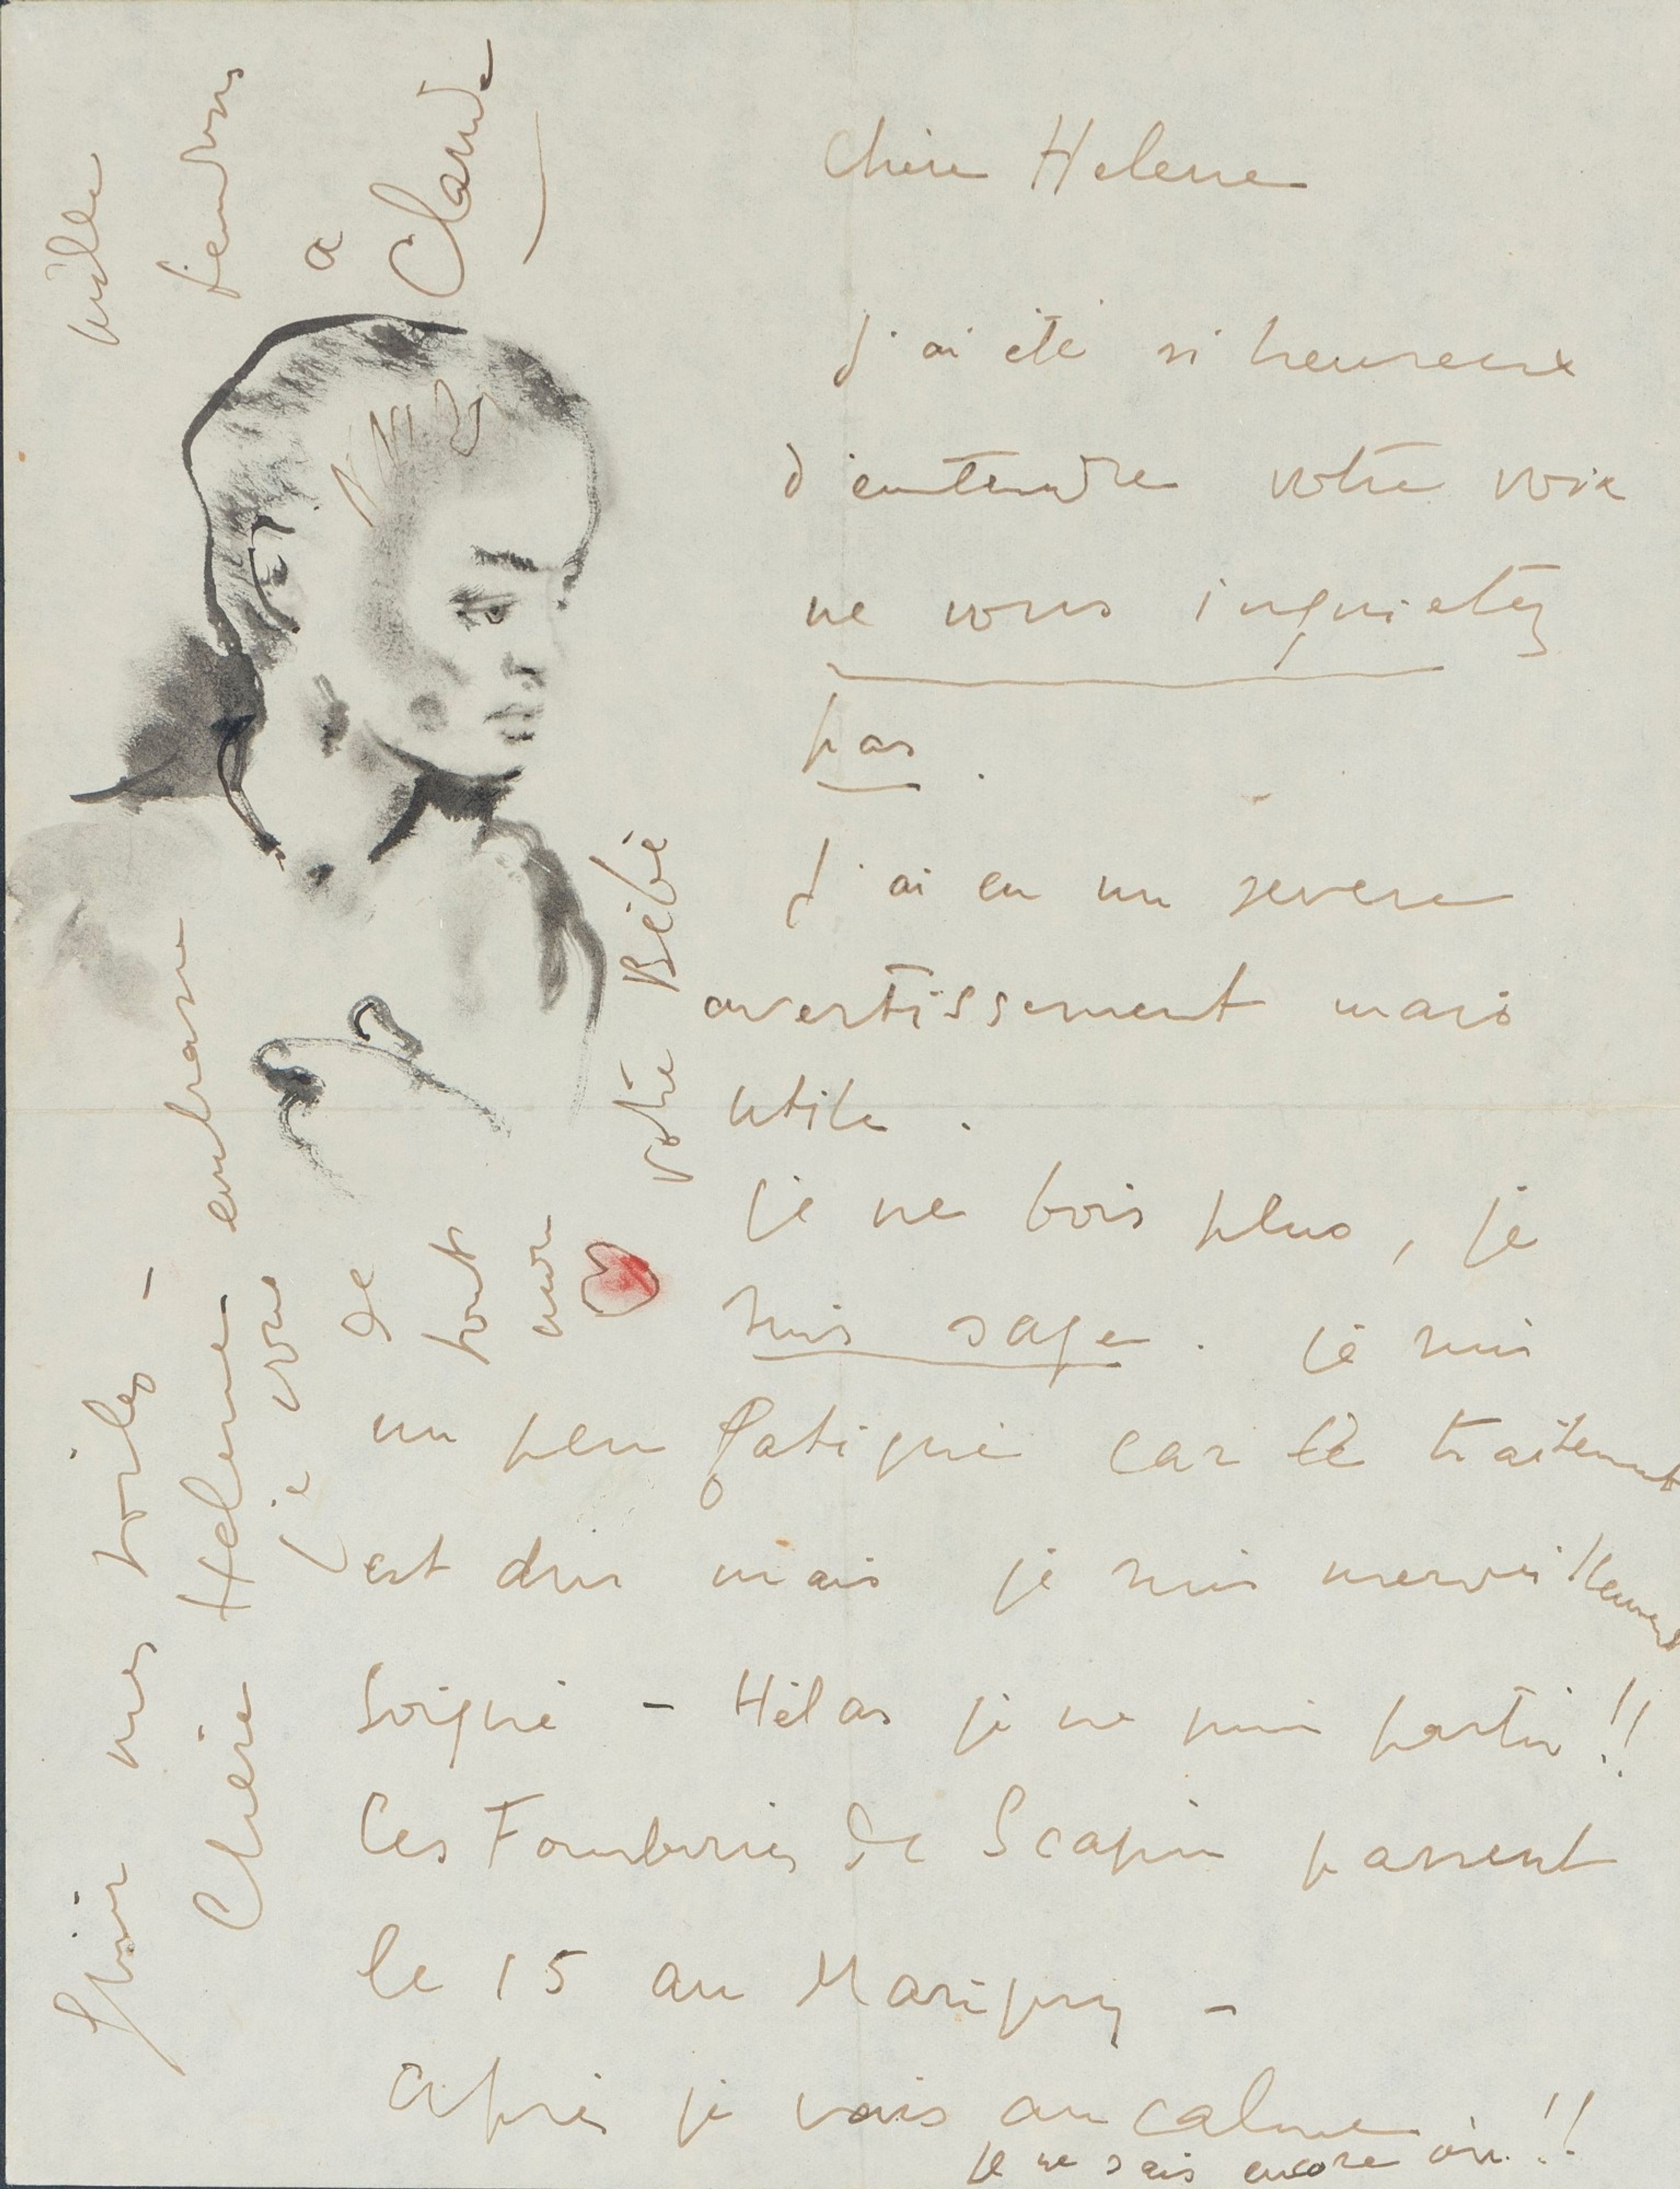 Chère Helene
J'ai été si heureux
d'entendre votre voix
ne vous inquietez
pas.
J'ai eu un severe
avertissement mais
utile.
je ne bois plus, je
suis sage. je suis
un peu fatigué car le traitement
est dur mais je suis merveilleusement
soigné - Hélas je ne puis partir !!
Les Fourberies de Scapin passent
le 15 au Marigny -
après je vais au calme
je ne sais encore où. !!
finir mes toiles -
Chérie Helene embrasse
je vous
de
tout
mon
votre Bébé
mille
tendresses
a
Claude